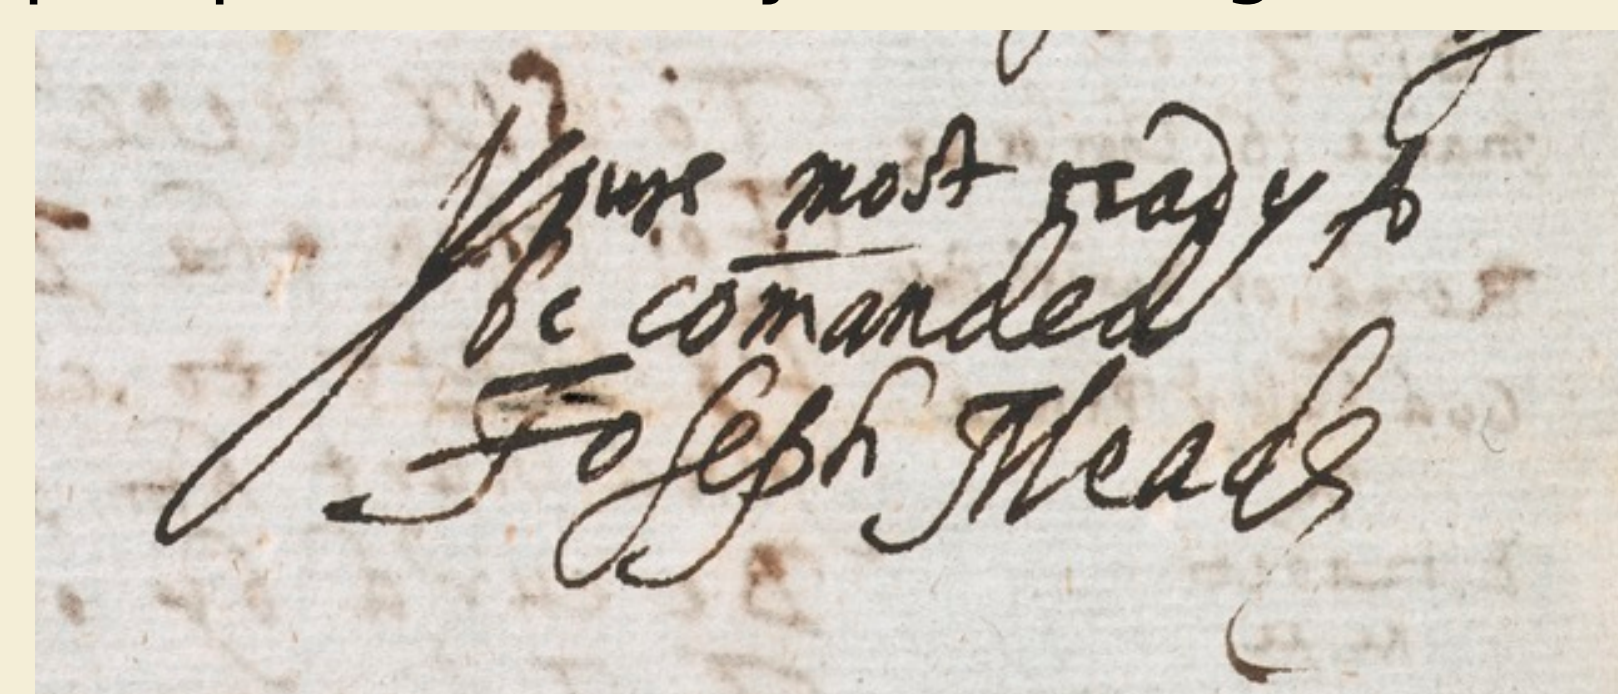 Yours most ready to
be comanded
Joseph Meade